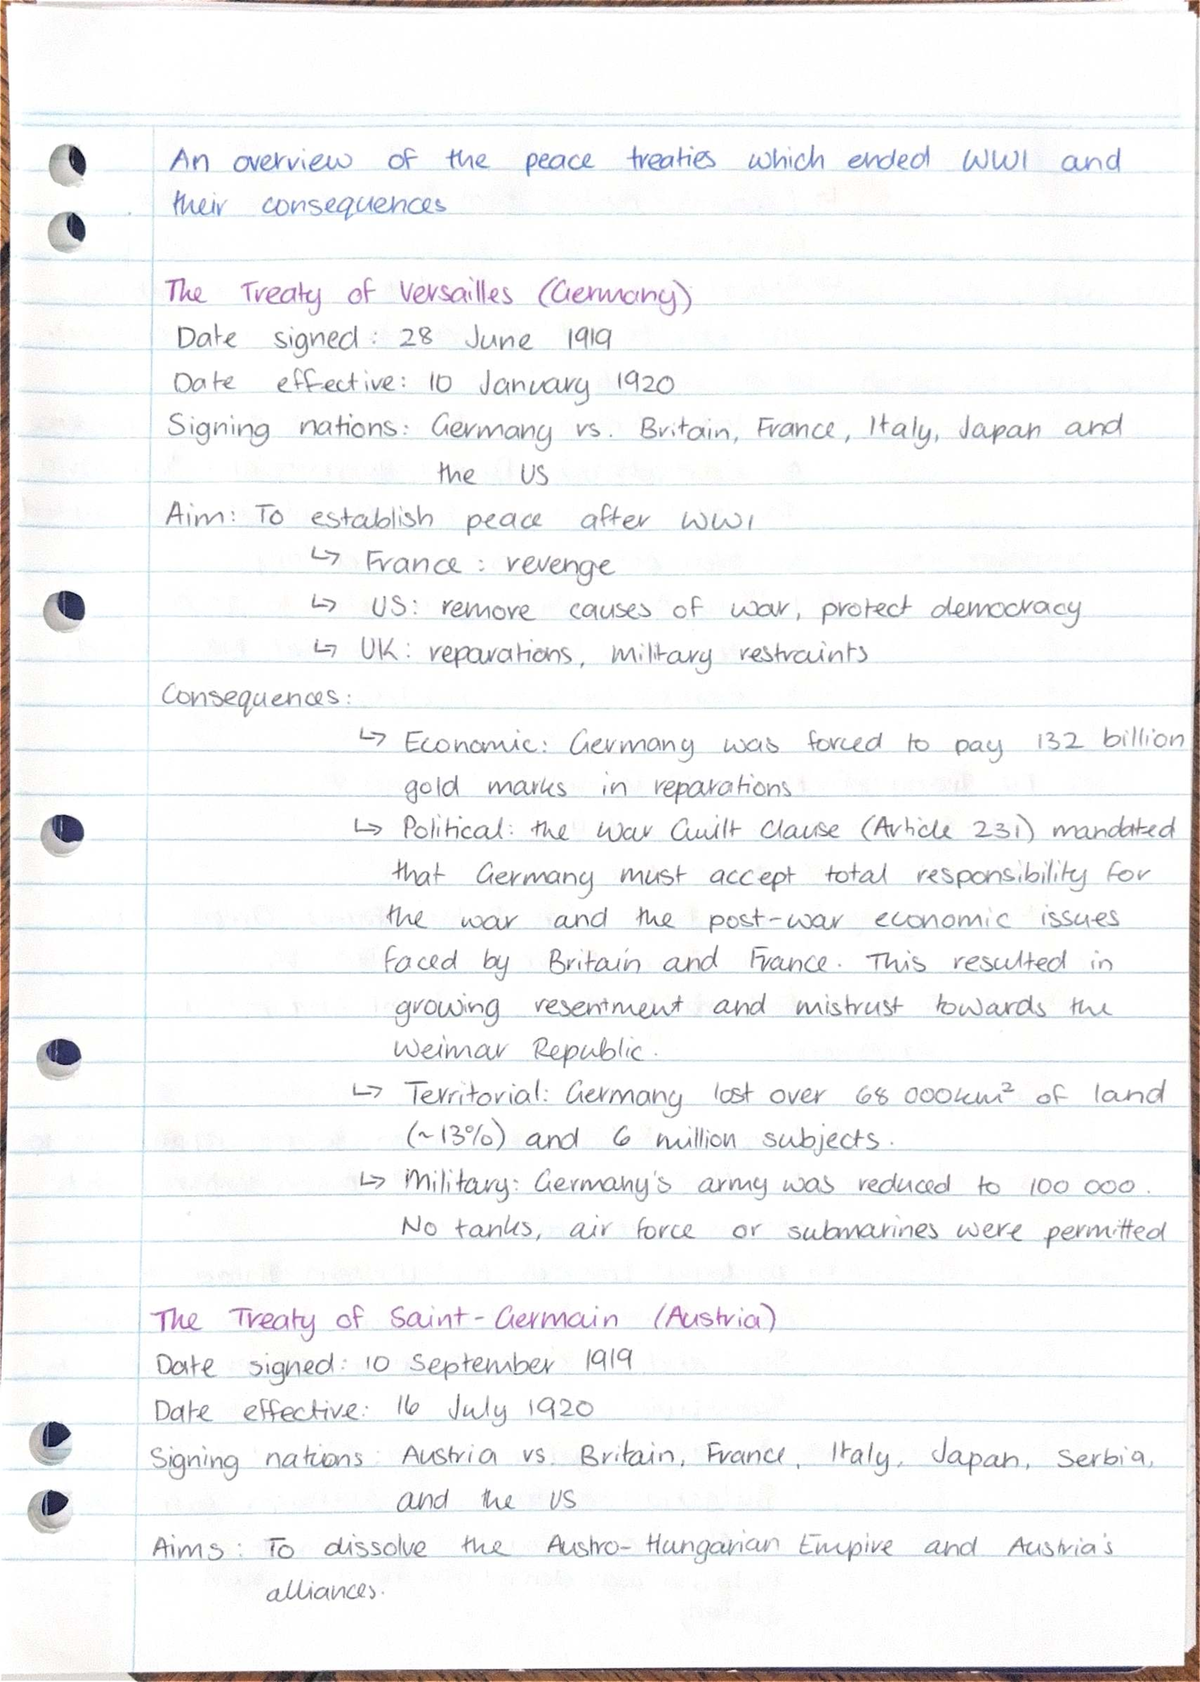 An overview of the peace treaties which ended WWI and
their consequences
The Treaty of Versailles (Germany)
Date signed: 28 June 1919
Date effective: 10 January 1920
Signing nations: Germany vs. Britain, France, Italy, Japan and
the US
Aim: To establish peace after WWI
↳ France: revenge
↳ US: remore causes of war, protect democracy
↳ UK: reparations, military restraints
Consequences:
↳ Economic: Germany was forced to pay 132 billion
gold marks in reparations
↳ Political: the War Guilt Clause (Article 231) mandated
that Germany must accept total responsibility for
the war and the post-war economic issues
faced by Britain and France. This resulted in
growing resentment and mistrust towards the
Weimar Republic.
↳ Territorial: Germany lost over 68 000km² of land
(~13%) and 6 million subjects.
↳ Military: Germany's army was reduced to 100 000.
No tanks, air force or submarines were permitted
The Treaty of Saint-Germain (Austria)
Date signed: 10 September 1919
Date effective: 16 July 1920
Signing nations: Austria vs. Britain, France, Italy, Japan, Serbia,
and the US
Aims: To dissolve the Austro-Hungarian Empire and Austria's
alliances.